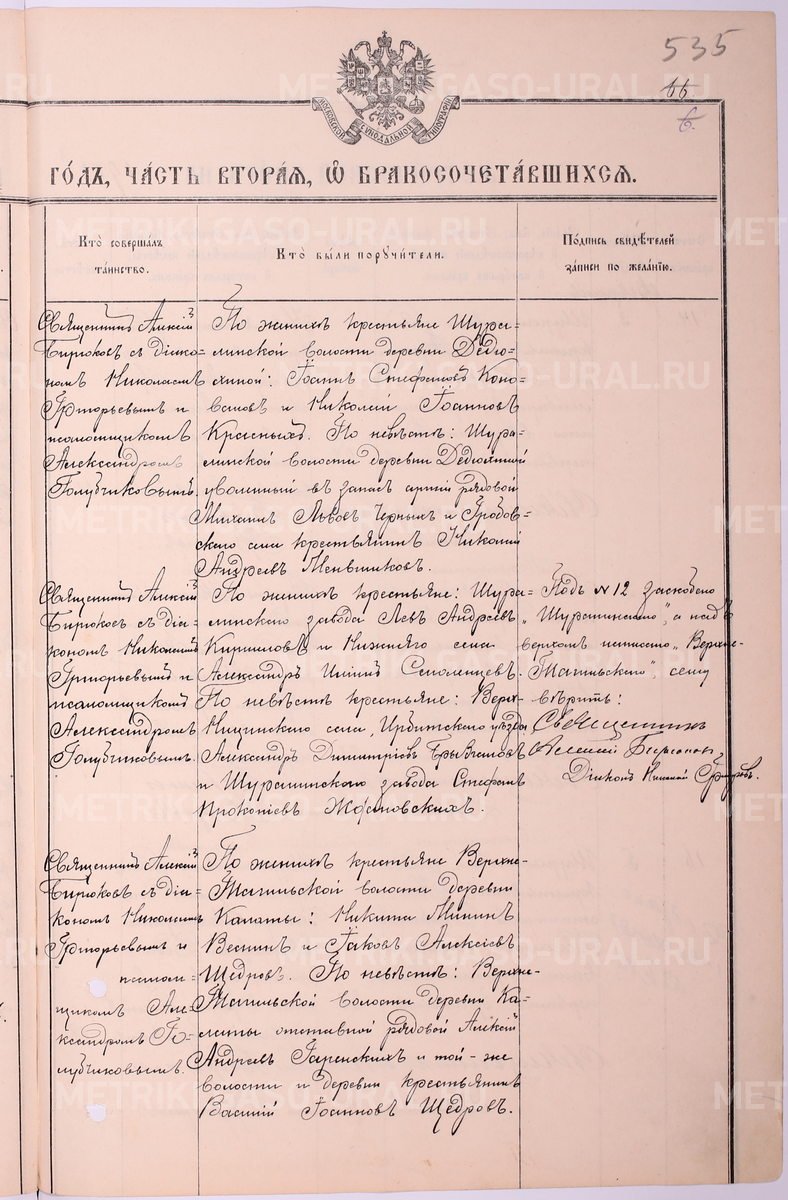 535
66.
6.
МОСКОВСКОЙ СѴНОДАЛЬНОЙ ТИПОГРАФІИ
ГО́ДЪ, ЧА́СТЬ ВТОРА́Я, Ѽ БРАКОСОЧЕТА́ВШИХСЯ.
Кто̀ соверша́лъ
та́инство.
Кто̀ бы́ли порꙋчи́тели.
По́дпись свидѣ́телей
за́писи по жела́нію.
Священникъ Алексій
Бирюковъ съ діако-
номъ Николаемъ
Григорьевымъ и
псаломщикомъ
Александромъ
Голубчиковымъ.
По женихѣ крестьяне Шура-
линской волости деревни Дедю-
хиной: Іоаннъ Стефановъ Коно-
валовъ и Николай Іоанновъ
Красныхъ. По невѣстѣ: Шура-
линской волости деревни Дедюхиной
уволенный въ запасъ арміи рядовой
Михаилъ Львовъ Черныхъ и Гробов-
скаго села крестьянинъ Николай
Андреевъ Меньшиковъ.
Священникъ Алексій
Бирюковъ съ діа-
кономъ Николаемъ
Григорьевымъ и
псаломщикомъ
Александромъ
Голубчиковымъ.
По женихѣ крестьяне: Шура-
линскаго завода Левъ Андреевъ
Кирилловъ и Нижняго села
Александръ Смоленцевъ.
По невѣстѣ крестьяне: Верх-
Ницинскаго села, Ирбитскаго уѣзда
Александръ Димитріевъ
и Шуралинскаго завода Стефанъ
Прокопіевъ
Подъ №12 заскоблено
„Шуралинскаго“, а надъ
верхомъ написано „Верхне-
Тагильскаго“, сему
вѣрить:
Священникъ
Алексій Бирюковъ
Діаконъ Николай Григорьевъ.
Священникъ Алексій
Бирюковъ съ діа-
кономъ Николаемъ
Григорьевымъ и
псалом-
щикомъ Але-
ксандромъ Го-
лубчиковымъ.
По женихѣ крестьяне Верхне-
Тагильской волости деревни
Калаты: Никита Мининъ
Веснинъ и Іаковъ Алексѣевъ
Щедровъ. По невѣстѣ: Верхне-
Тагильской волости деревни Ка-
латы отставной рядовой Алексій
Андреевъ Гаренскихъ и той-же
волости и деревни крестьянинъ
Василій Іоанновъ Щедровъ.
METRIKI.GASO-URAL.RU